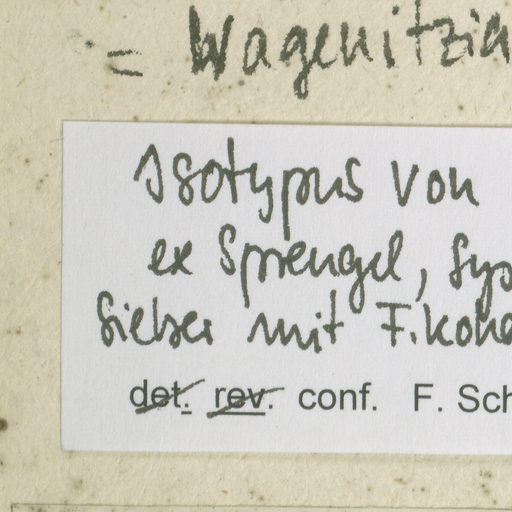 = Wagenitzia
Isotypus von
ex Sprengel, Sys
Sieber mit F. Koh
det. rev. conf. F. Sch